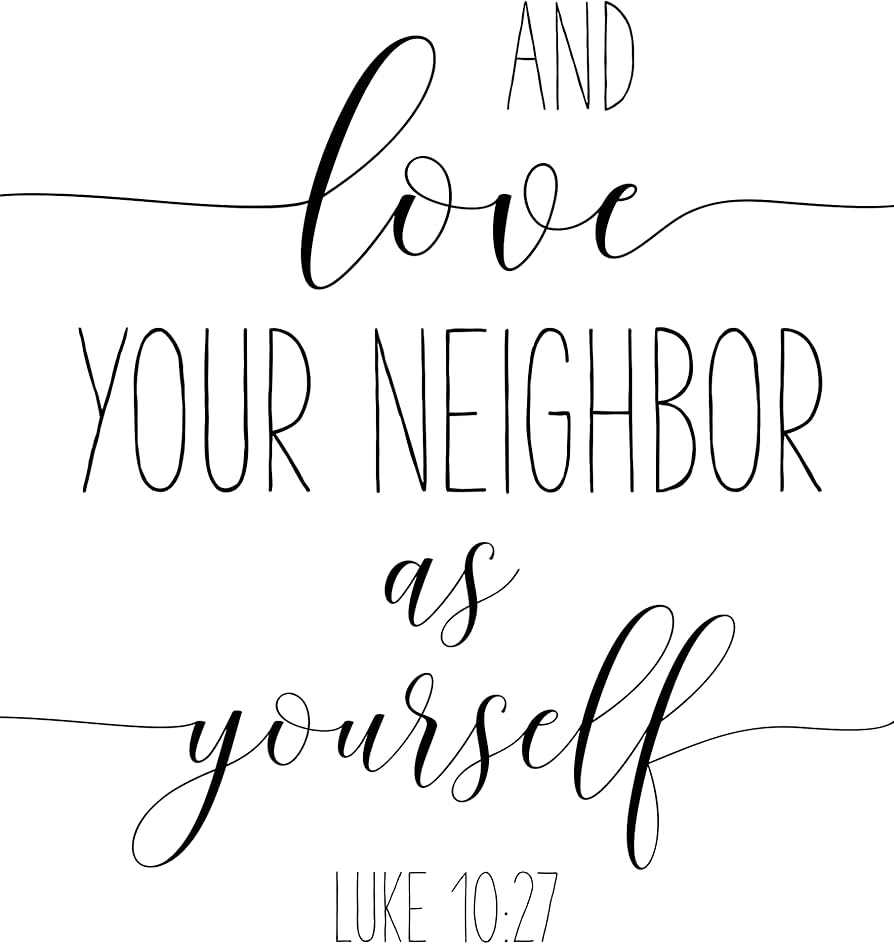 AND
love
YOUR NEIGHBOR
as
yourself
LUKE 10:27